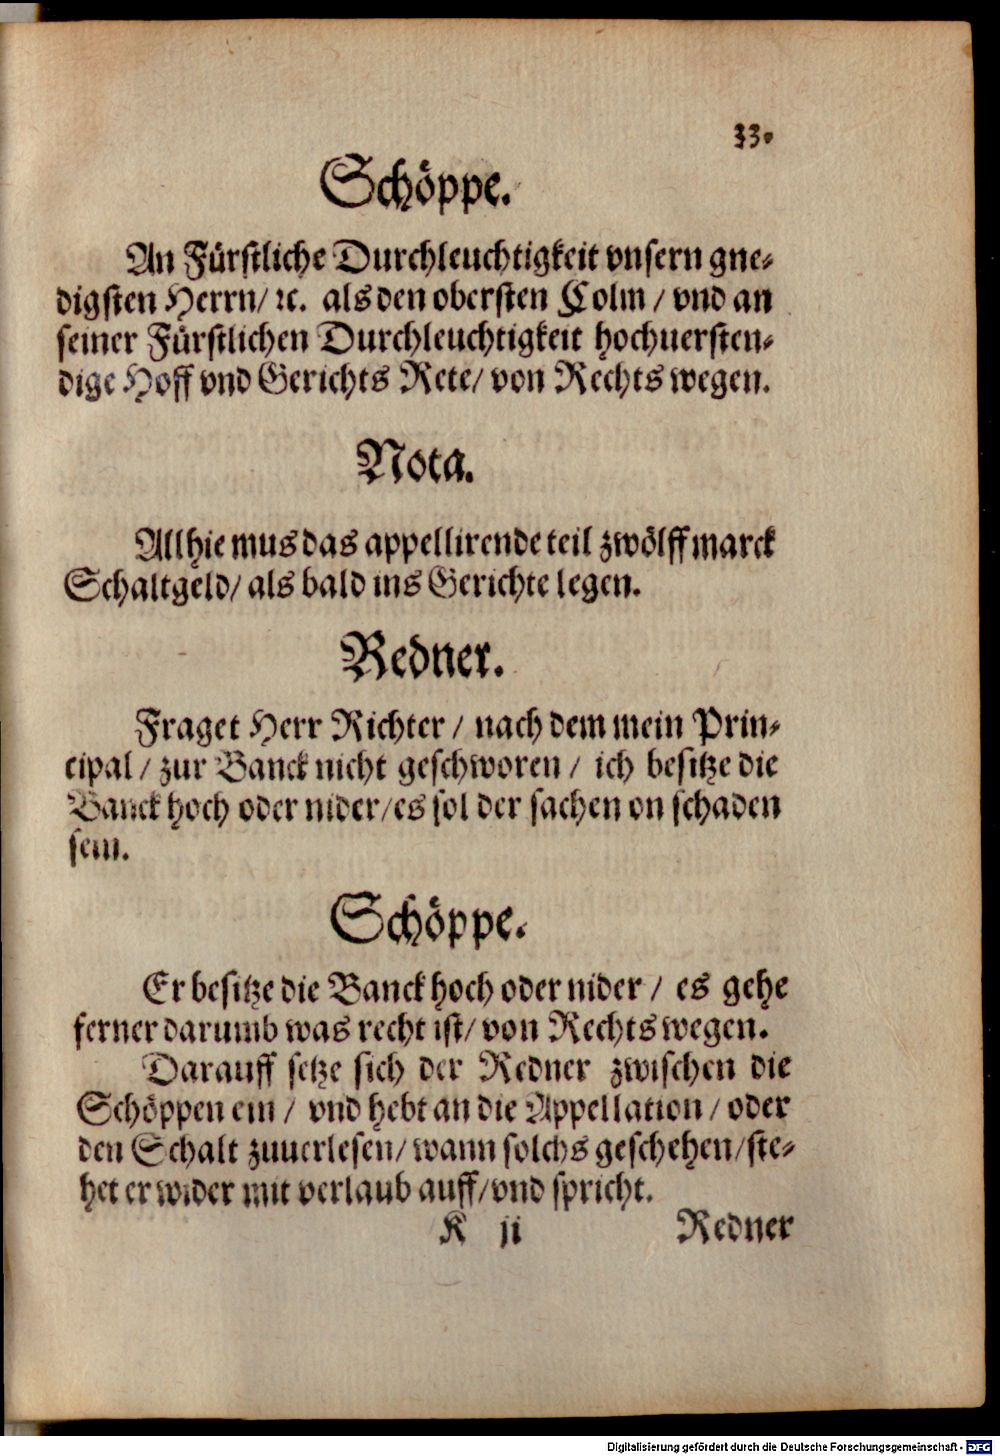 33.
Schöppe.
An Fürstliche Durchleuchtigkeit vnsern gne-
digsten Herrn/ ꝛc. als den obersten Colm / vnd an
seiner Fürstlichen Durchleuchtigkeit hochuersten-
dige Hoff vnd Gerichts Rete/ von Rechts wegen.
Nota.
Allhie mus das appellirende teil zwölff marck
Schaltgeld/ als bald ins Gerichte legen.
Redner.
Fraget Herr Richter / nach dem mein Prin-
cipal / zur Banck nicht geschworen / ich besitze die
Banck hoch oder nider/ es sol der sachen on schaden
sein.
Schöppe.
Er besitze die Banck hoch oder nider / es gehe
ferner darumb was recht ist/ von Rechts wegen.
Darauff setze sich der Redner zwischen die
Schöppen ein / vnd hebt an die Appellation / oder
den Schalt zuuerlesen/ wann solchs geschehen/ ste-
het er wider mit verlaub auff/ vnd spricht.
K ij Redner
Digitalisierung gefördert durch die Deutsche Forschungsgemeinschaft - DFG